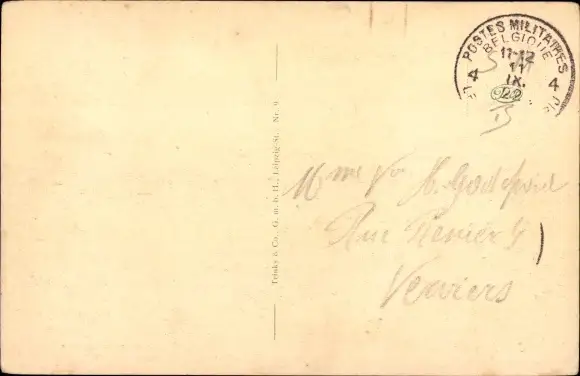 POSTES MILITAIRES
BELGIQUE
4 4
11-12
11
IX.
22
Trinks & Co., G. m. b. H., Leipzig-St. Nr. 9
Mme Vve H. Godefroid
Rue Renier 4
Verviers